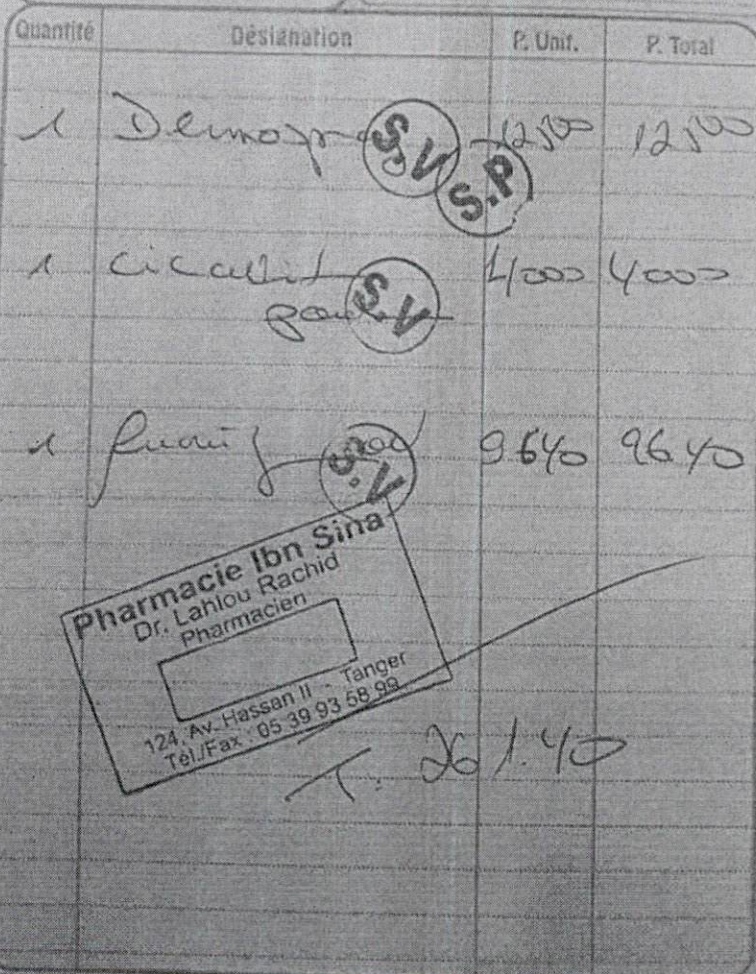 Quantité Désignation P. Unit. P. Total
1 S.V 12500 12500
S.P
1 S.V 4000 4000
1 S.V 9640 9640
Pharmacie Ibn Sina
Dr. Lahlou Rachid
Pharmacien
124, Av. Hassan II - Tanger
Tél./Fax : 05 39 93 58 99
T: 261.40